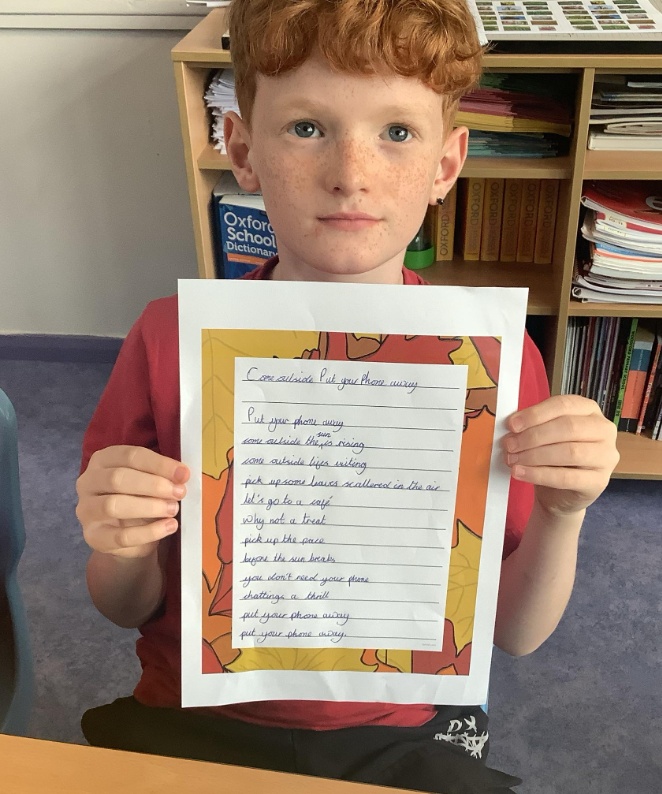 Oxford
School
Dictionary
OXFORD
OXFORD
Come outside Put your Phone away
Put your phone away
come outside the sun is rising
come outside lifes writing
pick up some leaves scattered in the air
let's go to a café
why not a treat
pick up the pace
before the sun breaks
you don't need your phone
chattings a thrill
put your phone away
put your phone away.